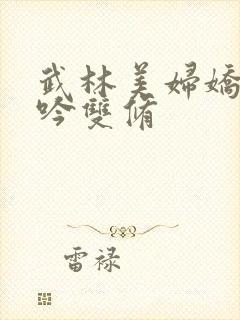 武林美婦嬌
吟雙脩
雷禄